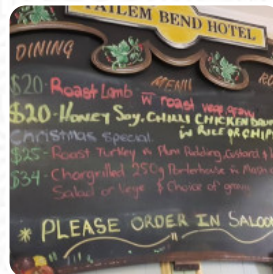 TAILEM BEND HOTEL
DINING MENU
$20 - Roast Lamb w roast veg, gravy
$20 - Honey Soy, CHILLI CHICKEN
w RICE OR CHIP
Christmas Special
$25 - Roast Turkey & Plum Pudding, Custard &
$34 - Chargrilled 250g Porterhouse w Mash
Salad or Vege & Choice of gravy
* PLEASE ORDER IN SALOO